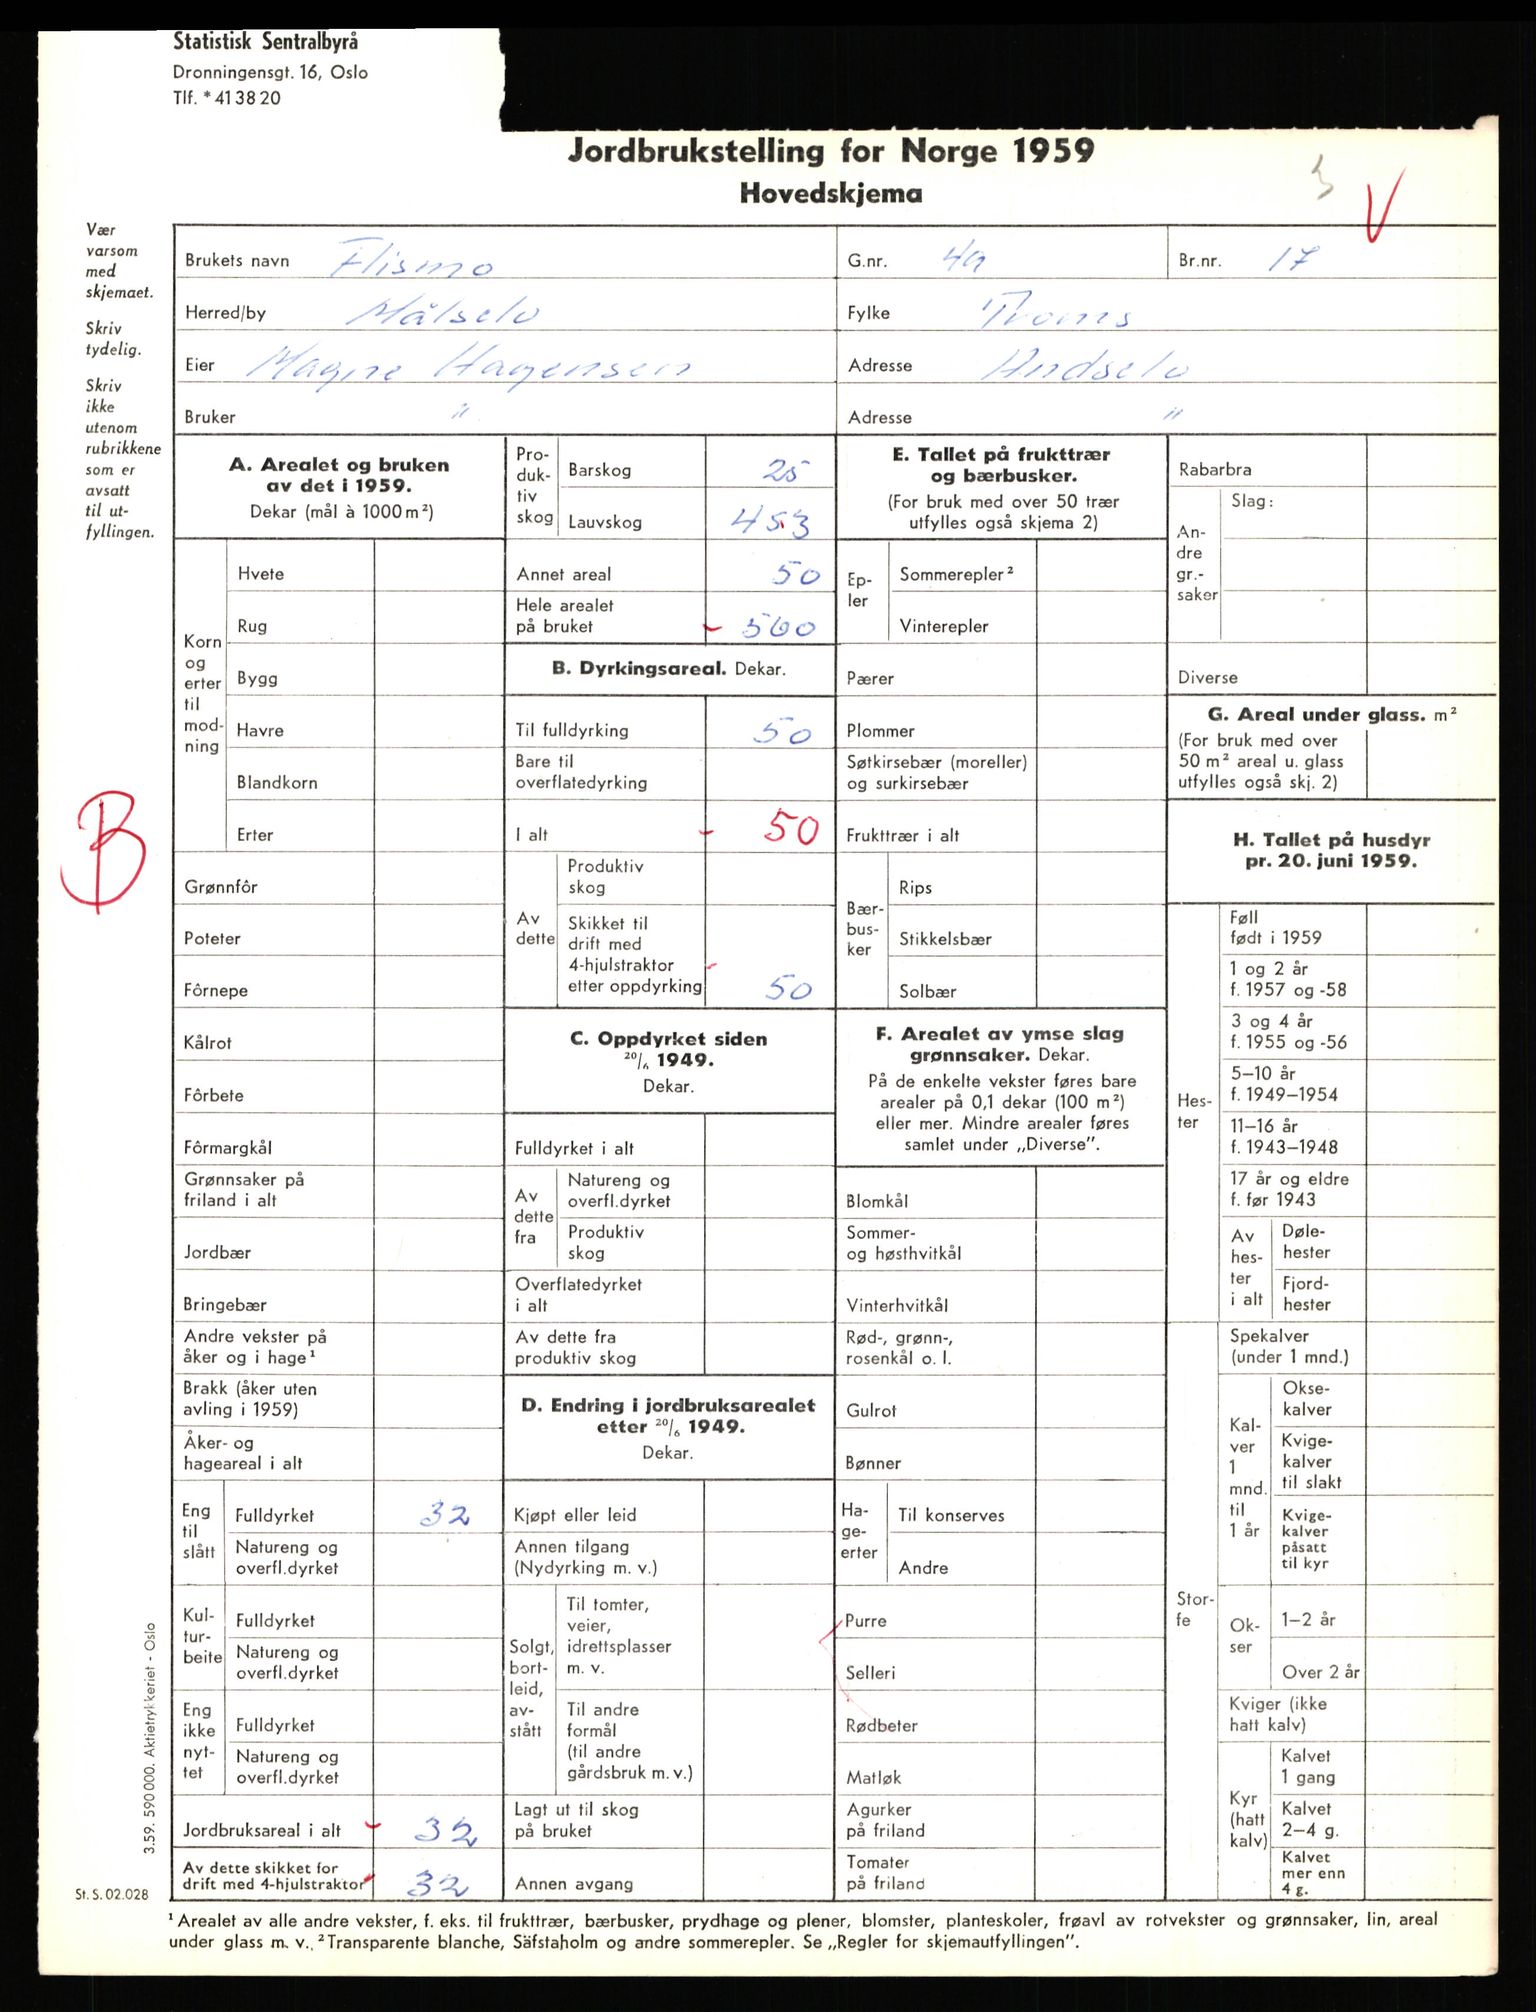 Statistisk Sentralbyrå
Dronningensgt. 16, Oslo
Tlf. * 41 38 20
Jordbrukstelling for Norge 1959
Hovedskjema
V
Vær
varsom
med
skjemaet.
Skriv
tydelig.
Skriv
ikke
utenom
rubrikkene
som er
avsatt
til ut-
fyllingen.
Brukets navn Flismo
G.nr. 49
Br.nr. 17
Herred/by Målselv
Fylke Troms
Eier Magne Hagensen
Adresse Andselv
Bruker "
Adresse "
A. Arealet og bruken
av det i 1959.
Dekar (mål à 1000 m²)
Korn
og
erter
til
mod-
ning
Hvete
Rug
Bygg
Havre
Blandkorn
Erter
B
Grønnfôr
Poteter
Fôrnepe
Kålrot
Fôrbete
Fôrmargkål
Grønnsaker på
friland i alt
Jordbær
Bringebær
Andre vekster på
åker og i hage¹
Brakk (åker uten
avling i 1959)
Åker- og
hageareal i alt
Eng
til
slått
Fulldyrket 32
Natureng og
overfl.dyrket
Kul-
tur-
beite
Fulldyrket
Natureng og
overfl.dyrket
Eng
ikke
nyt-
tet
Fulldyrket
Natureng og
overfl.dyrket
Jordbruksareal i alt 32
Av dette skikket for
drift med 4-hjulstraktor 32
Pro-
duk-
tiv
skog
Barskog 25
Lauvskog 453
Annet areal 50
Hele arealet
på bruket 560
B. Dyrkingsareal. Dekar.
Til fulldyrking 50
Bare til
overflatedyrking
I alt 50
Av
dette
Produktiv
skog
Skikket til
drift med
4-hjulstraktor
etter oppdyrking 50
C. Oppdyrket siden
20/6 1949.
Dekar.
Fulldyrket i alt
Av
dette
fra
Natureng og
overfl.dyrket
Produktiv
skog
Overflatedyrket
i alt
Av dette fra
produktiv skog
D. Endring i jordbruksarealet
etter 20/6 1949.
Dekar.
Kjøpt eller leid
Annen tilgang
(Nydyrking m. v.)
Solgt,
bort-
leid,
av-
stått
Til tomter,
veier,
idrettsplasser
m. v.
Til andre
formål
(til andre
gårdsbruk m. v.)
Lagt ut til skog
på bruket
Annen avgang
E. Tallet på frukttrær
og bærbusker.
(For bruk med over 50 trær
utfylles også skjema 2)
Ep-
ler
Sommerepler²
Vinterepler
Pærer
Plommer
Søtkirsebær (moreller)
og surkirsebær
Frukttrær i alt
Bær-
bus-
ker
Rips
Stikkelsbær
Solbær
F. Arealet av ymse slag
grønnsaker. Dekar.
På de enkelte vekster føres bare
arealer på 0,1 dekar (100 m²)
eller mer. Mindre arealer føres
samlet under „Diverse".
Blomkål
Sommer-
og høsthvitkål
Vinterhvitkål
Rød-, grønn-,
rosenkål o. l.
Gulrot
Bønner
Ha-
ge-
erter
Til konserves
Andre
Purre
Selleri
Rødbeter
Matløk
Agurker
på friland
Tomater
på friland
Rabarbra
An-
dre
gr.-
saker
Slag:
Diverse
G. Areal under glass. m²
(For bruk med over
50 m² areal u. glass
utfylles også skj. 2)
H. Tallet på husdyr
pr. 20. juni 1959.
Hes-
ter
Føll
født i 1959
1 og 2 år
f. 1957 og -58
3 og 4 år
f. 1955 og -56
5–10 år
f. 1949–1954
11–16 år
f. 1943–1948
17 år og eldre
f. før 1943
Av
hes-
ter
i alt
Døle-
hester
Fjord-
hester
Stor-
fe
Spekalver
(under 1 mnd.)
Kal-
ver
1
mnd.
til
1 år
Okse-
kalver
Kvige-
kalver
til slakt
Kvige-
kalver
påsatt
til kyr
Ok-
ser
1–2 år
Over 2 år
Kviger (ikke
hatt kalv)
Kyr
(hatt
kalv)
Kalvet
1 gang
Kalvet
2–4 g.
Kalvet
mer enn
4 g.
3.59. 590 000. Aktietrykkeriet - Oslo
St. S. 02.028
¹ Arealet av alle andre vekster, f. eks. til frukttrær, bærbusker, prydhage og plener, blomster, planteskoler, frøavl av rotvekster og grønnsaker, lin, areal
under glass m. v. ² Transparente blanche, Säfstaholm og andre sommerepler. Se „Regler for skjemautfyllingen".